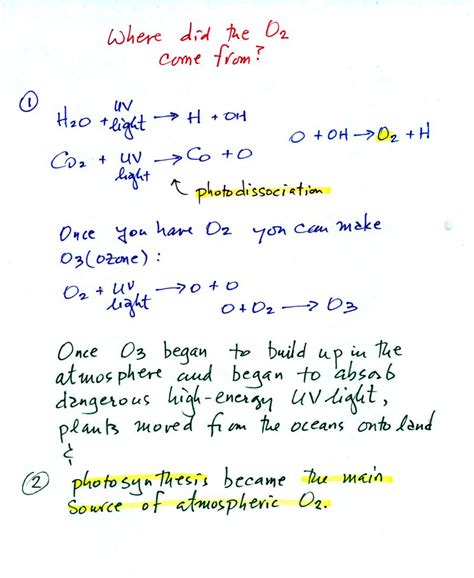 Where did the O2
come from?
①
H2O + UV light → H + OH
CO2 + UV light → CO + O
O + OH → O2 + H
↑ photodissociation
Once you have O2 you can make
O3 (ozone) :
O2 + UV light → O + O
O + O2 → O3
Once O3 began to build up in the
atmosphere and began to absorb
dangerous high-energy UV light,
plants moved from the oceans onto land
&
② photosynthesis became the main
source of atmospheric O2.